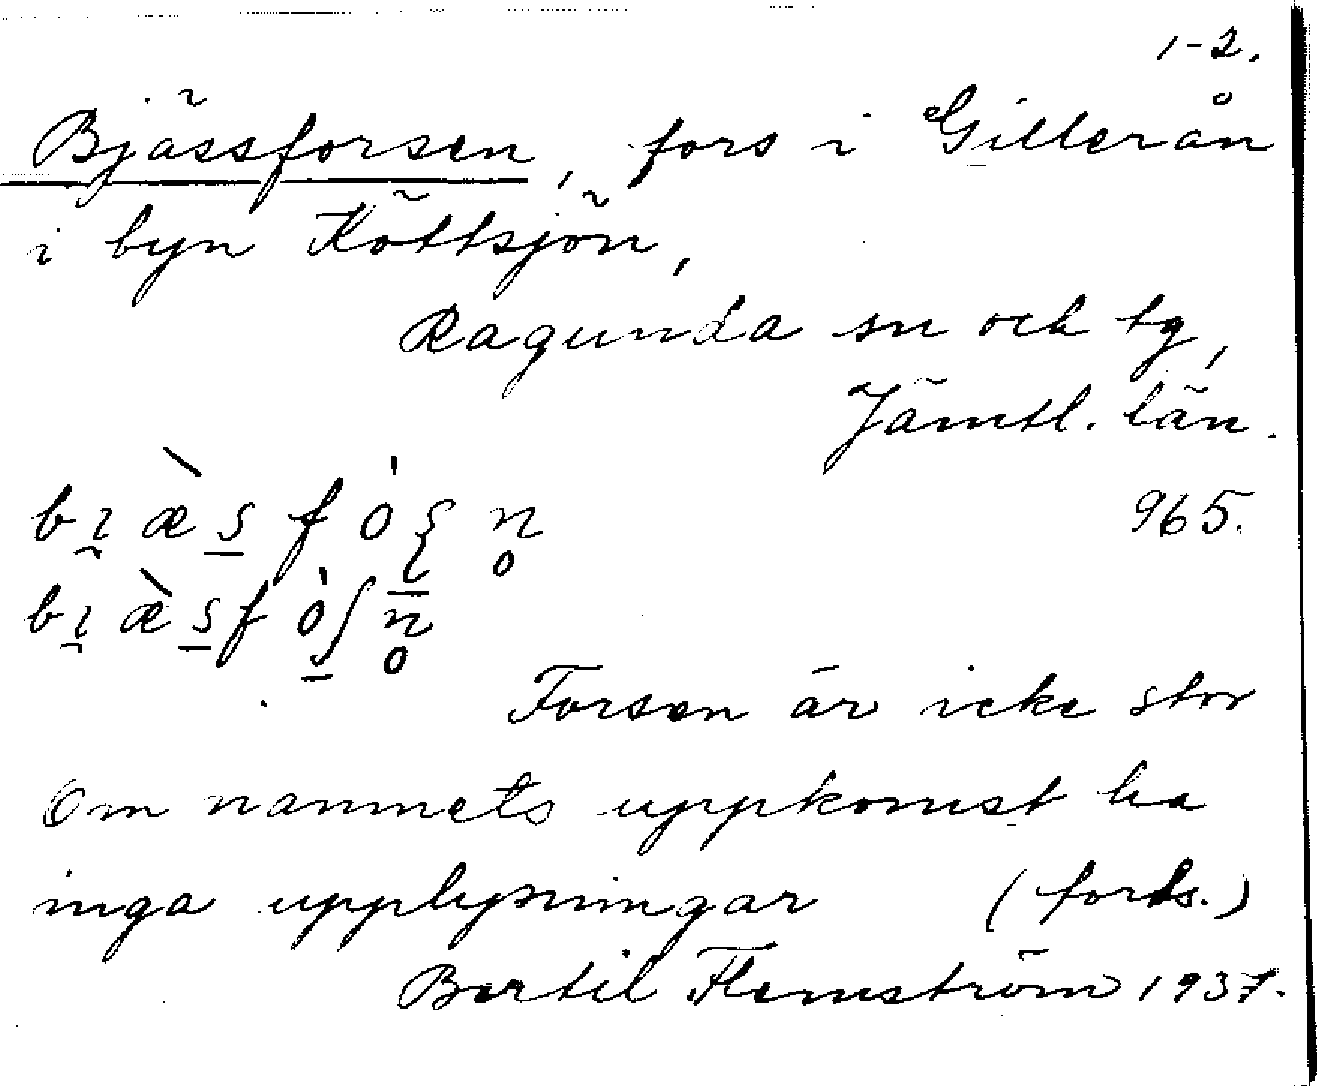 1-2.
Bjässforsen, fors i Gillerån
i byn Köttsjön,
Ragunda sn och tg,
Jämtl. län.
965.
bı̯æ̀s̲fóʂn̥
bı̯æ̀s̲fó̲ʃn̥
Forsen är icke stor
Om namnets uppkomst ha
inga upplysningar (forts.)
Bertil Flemström 1937.